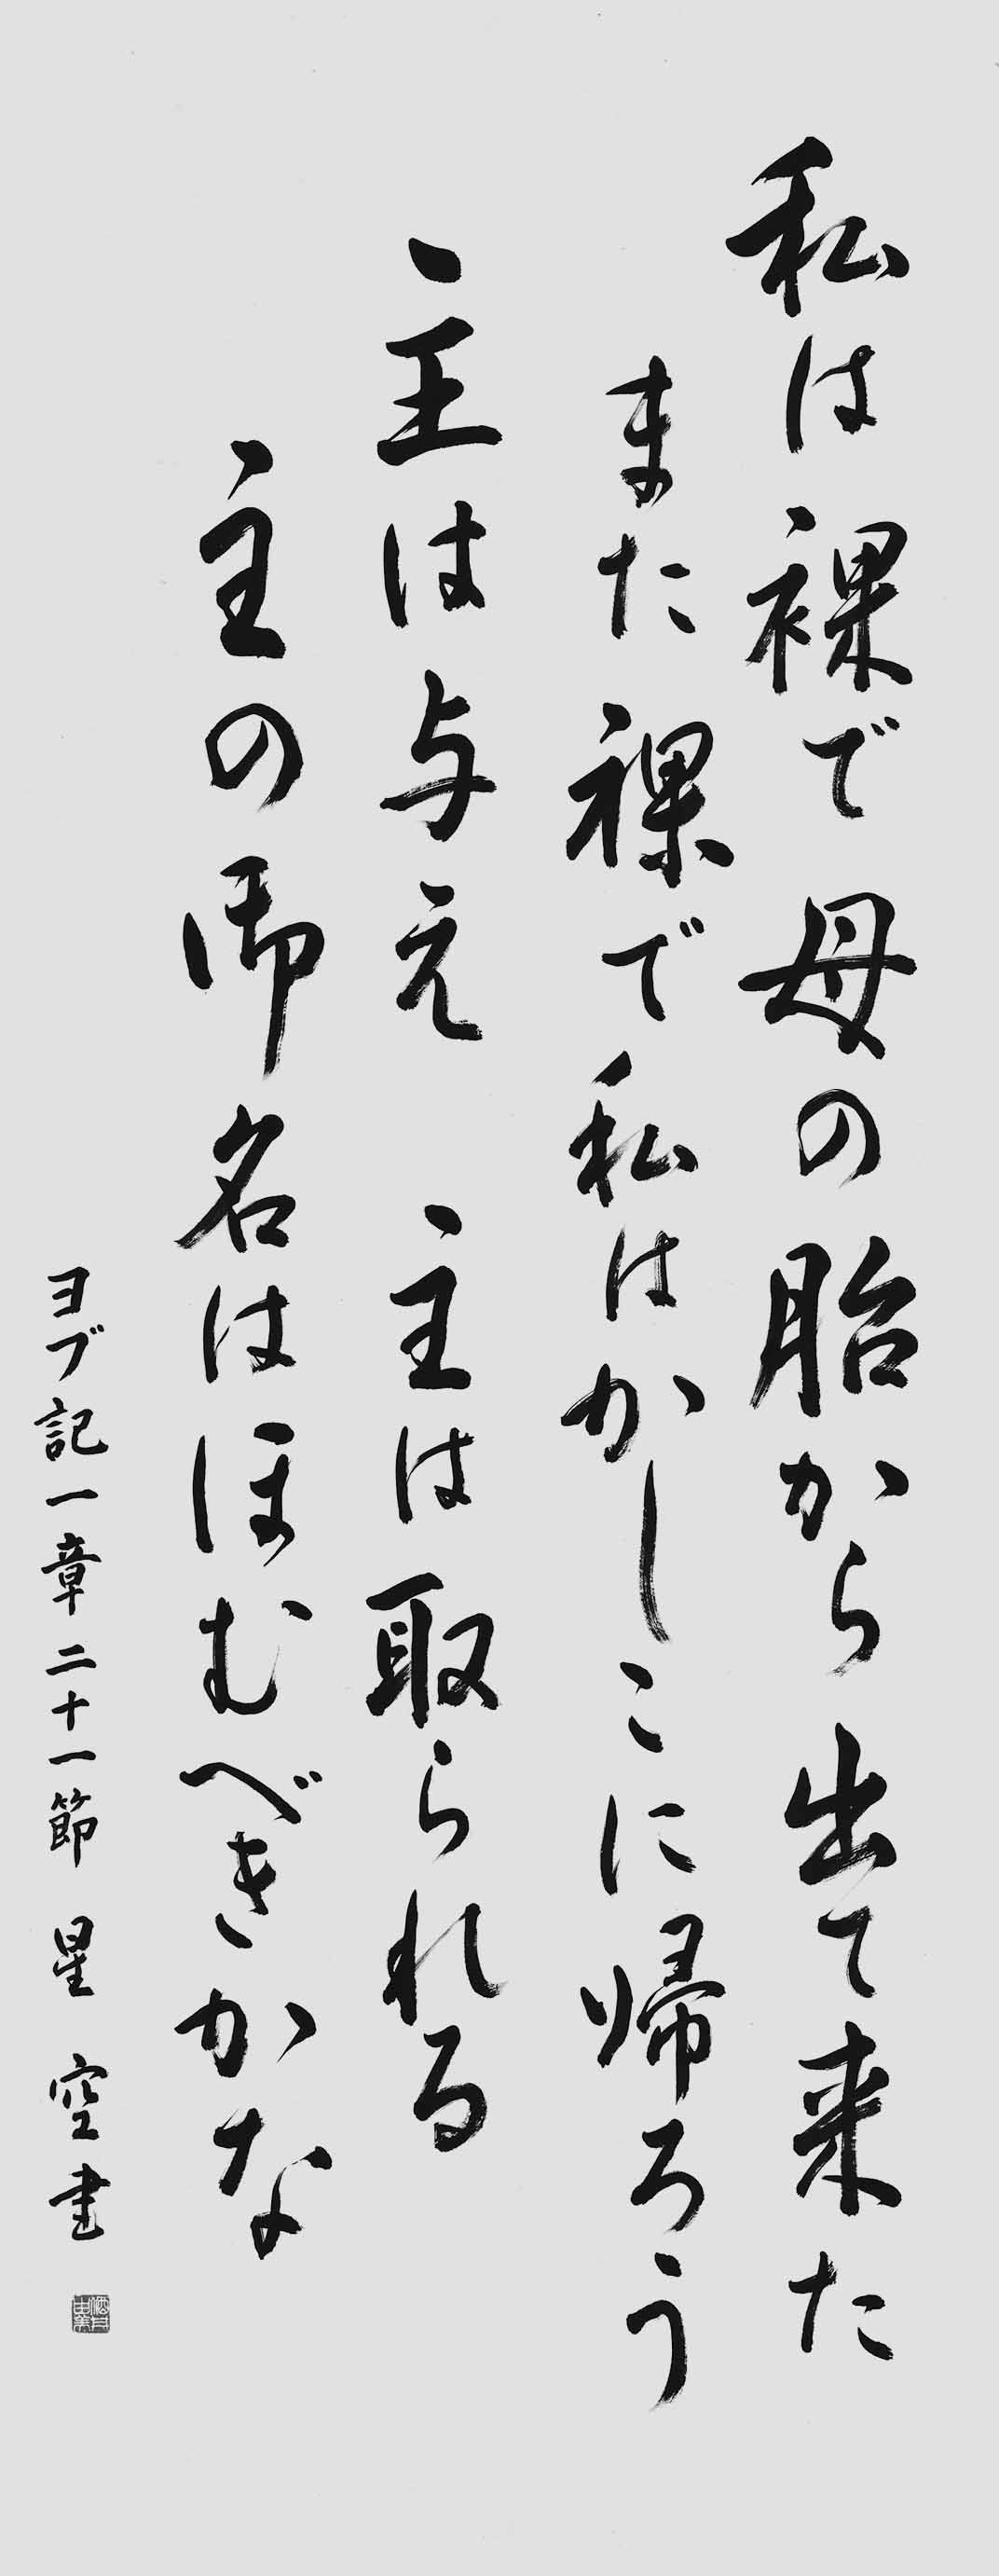 私は裸で母の胎から出て来た
また裸で私はかしこに帰ろう
主は与え　主は取られる
主の御名はほむべきかな
ヨブ記一章二十一節　星空書